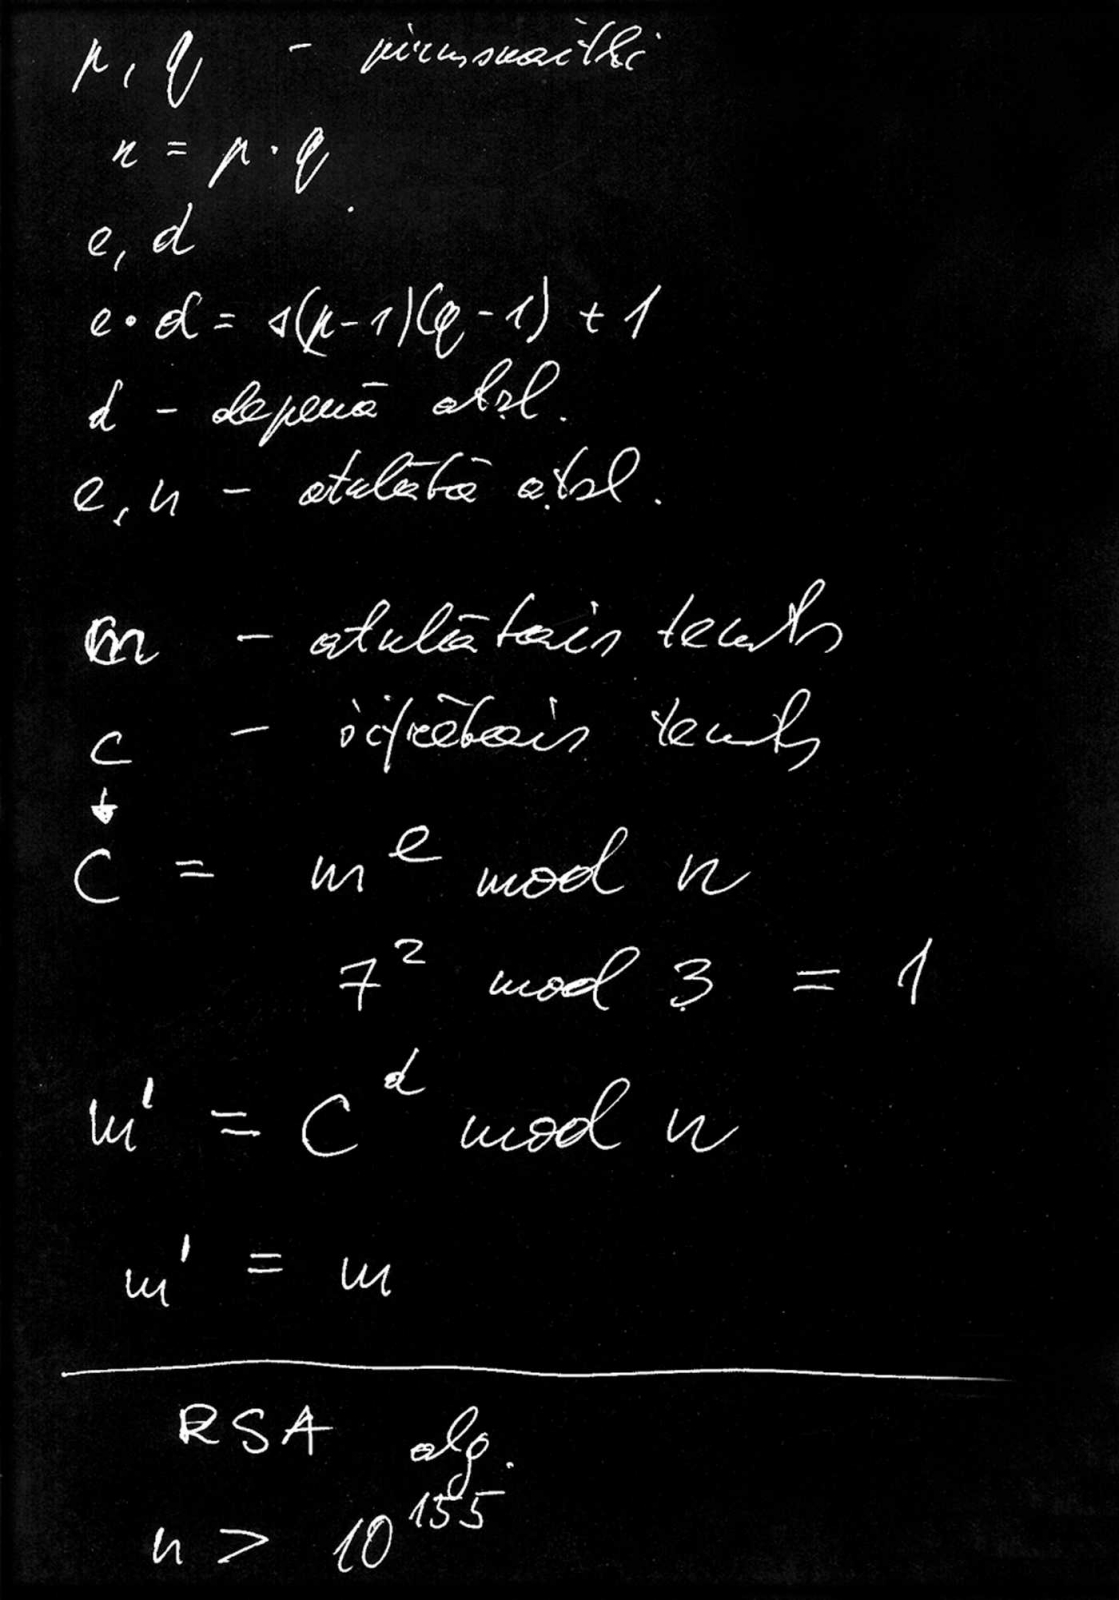 p, q - pirmskaitļi
n = p · q
e, d
e · d = 1(p-1)(q-1) + 1
d - slepenā atsl.
e, n - atklātā atsl.
m - atklātais teksts
c - šifrētais teksts
↓
C = m^e mod n
7² mod 3 = 1
m' = C^d mod n
m' = m
RSA alg.
n > 10^155